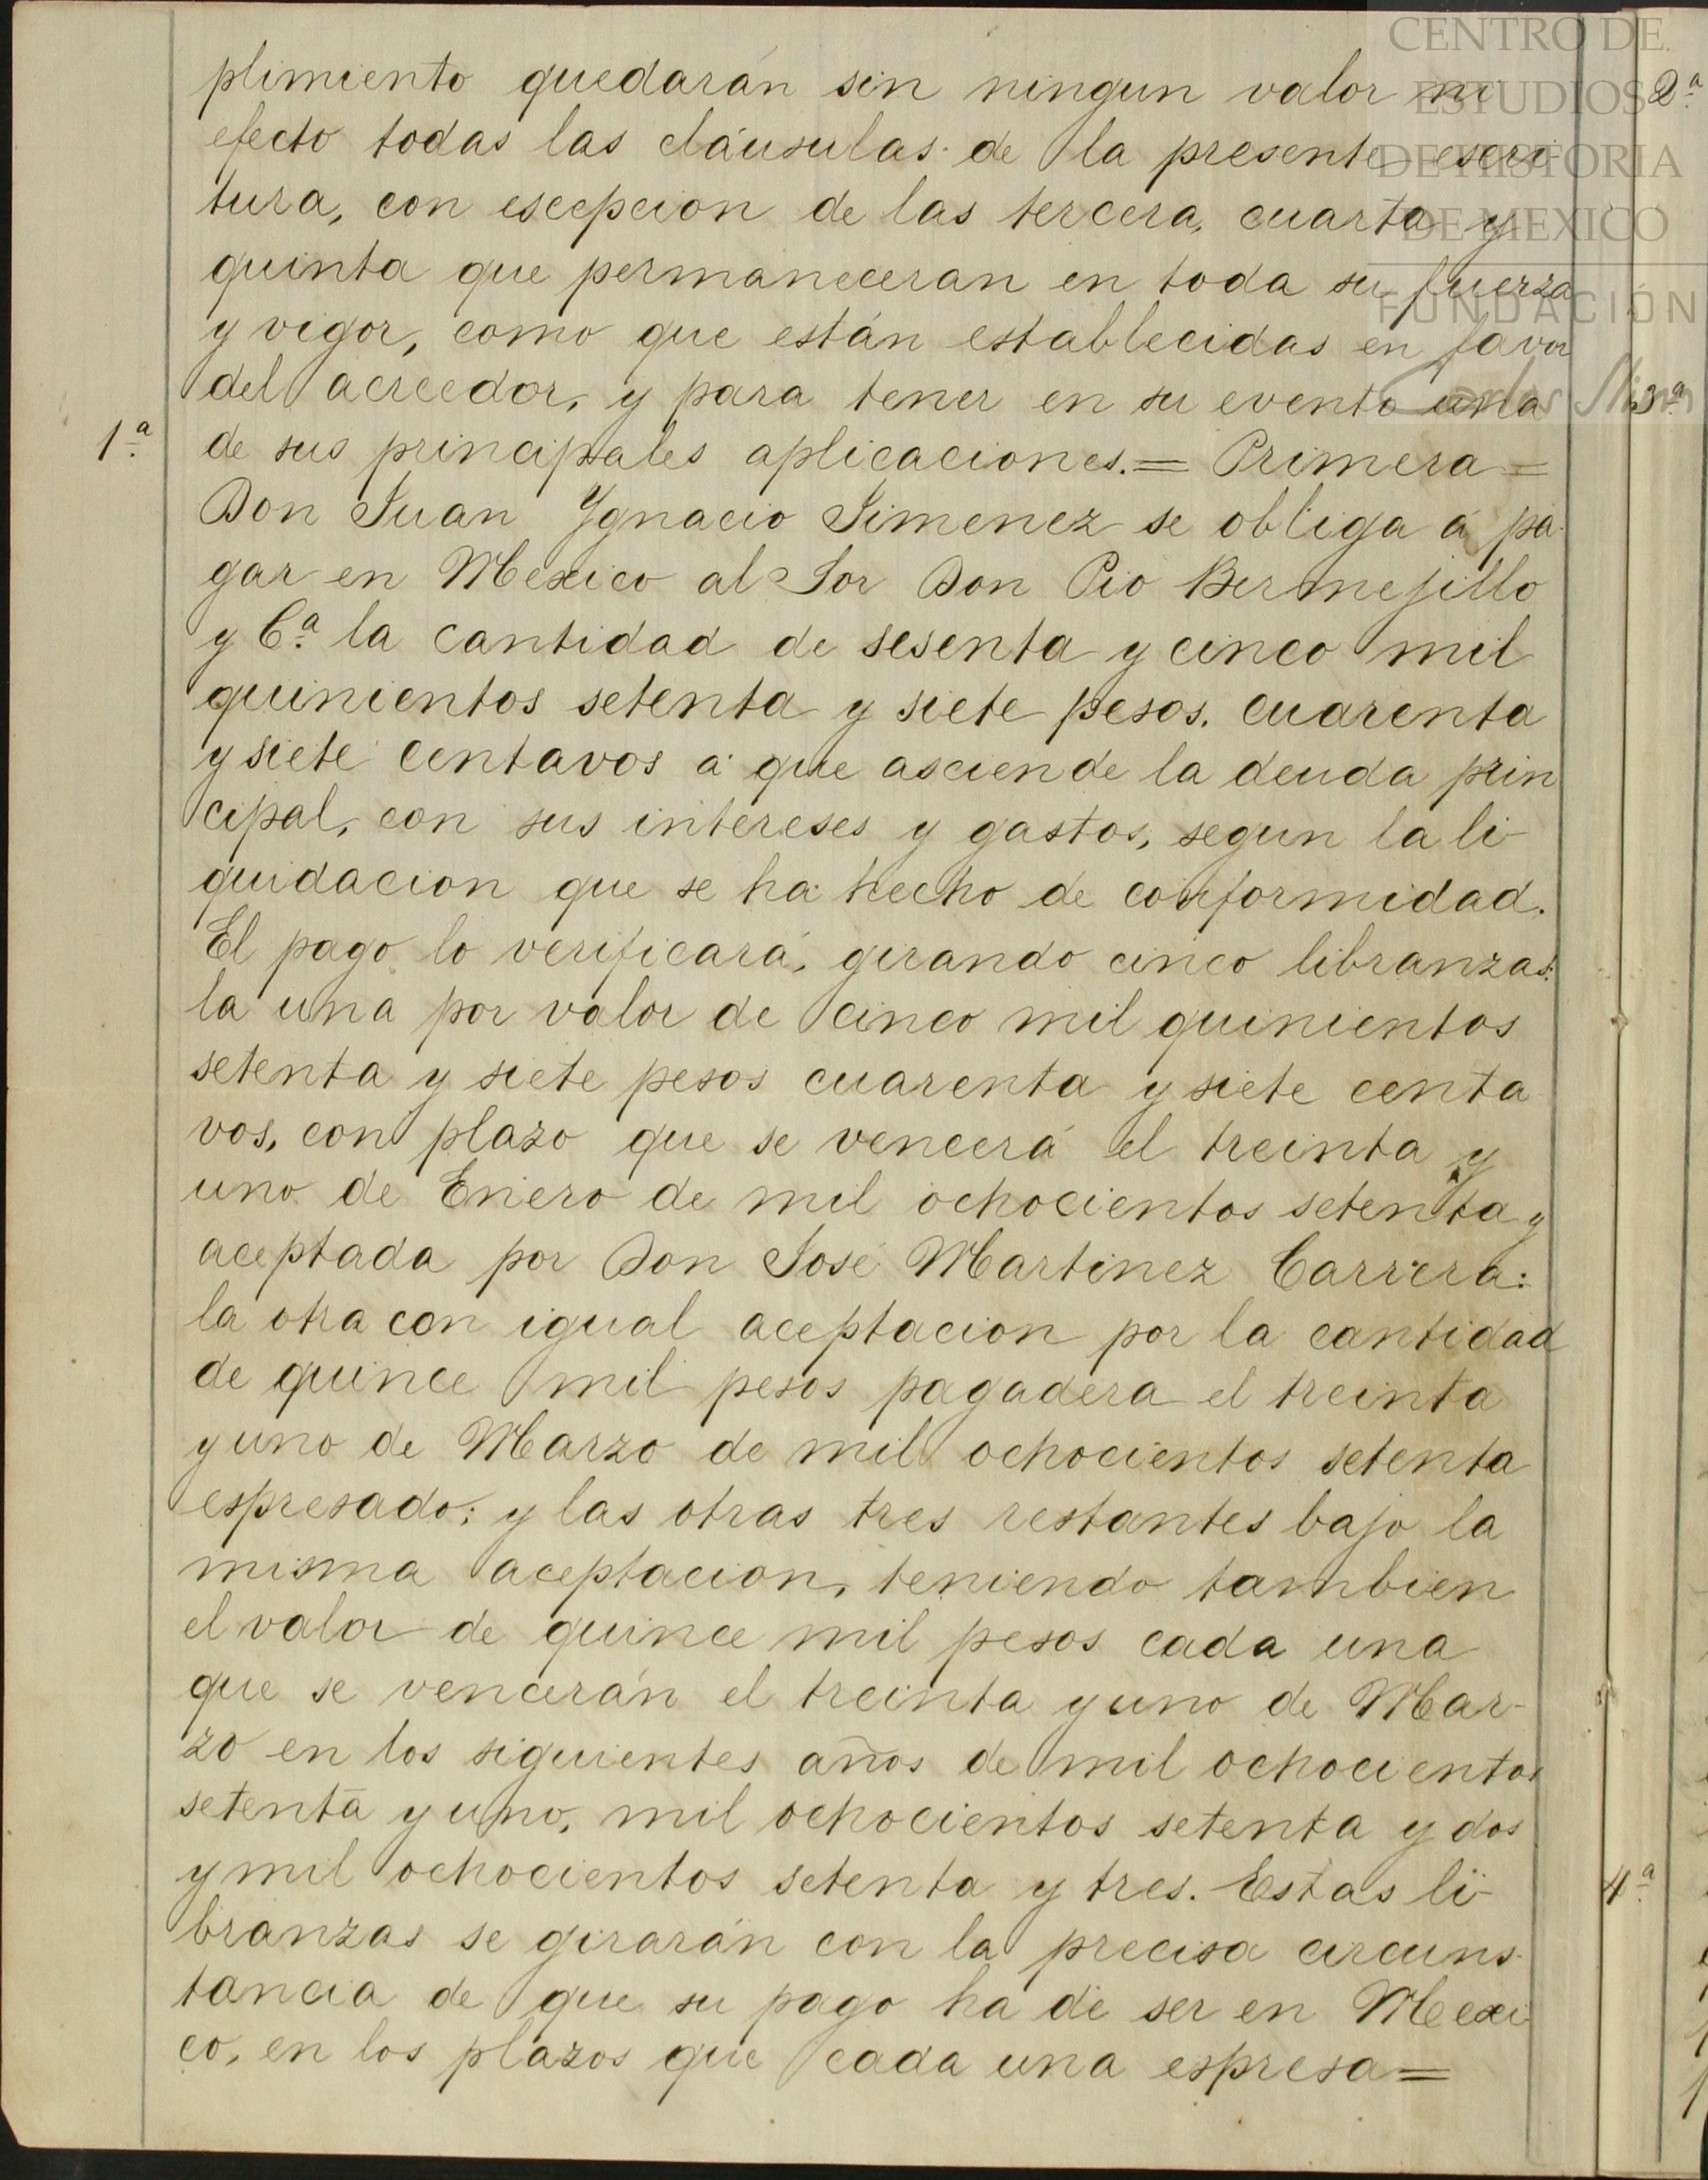 plimiento quedarán sin ningun valor ni
efecto todas las cláusulas de la presente escri-
tura, con escepcion de las tercera, cuarta y
quinta que permaneceran en toda su fuerza
y vigor, como que están establecidas en favor
del acreedor, y para tener en su evento una
1ª
de sus principales aplicaciones.= Primera=
Don Juan Ygnacio Jimenez se obliga á pa-
gar en Mexico al Sor Don Pio Bermejillo
y Cª la cantidad de sesenta y cinco mil
quinientos setenta y siete pesos, cuarenta
y siete centavos a que asciende la deuda prin
cipal, con sus intereses y gastos, segun la li-
quidacion que se ha hecho de conformidad.
El pago lo verificará, girando cinco libranzas:
la una por valor de cinco mil quinientos
setenta y siete pesos cuarenta y siete centa
vos, con plazo que se vencerá el treinta y
uno de Enero de mil ochocientos setenta y
aceptada por Don José Martinez Carrera:
la otra con igual aceptacion por la cantidad
de quince mil pesos pagadera el treinta
y uno de Marzo de mil ochocientos setenta
espresado; y las otras tres restantes bajo la
misma aceptacion, teniendo tambien
el valor de quince mil pesos cada una
que se vencerán el treinta y uno de Mar-
zo en los siguientes años de mil ochocientos
setenta y uno, mil ochocientos setenta y dos
y mil ochocientos setenta y tres. Estas li-
branzas se girarán con la precisa circuns-
tancia de que su pago ha de ser en Mexi-
co, en los plazos que cada una espresa=
2ª
3ª
4ª
CENTRO DE
ESTUDIOS
DE HISTORIA
DE MEXICO
FUNDACIÓN
Carlos Slim